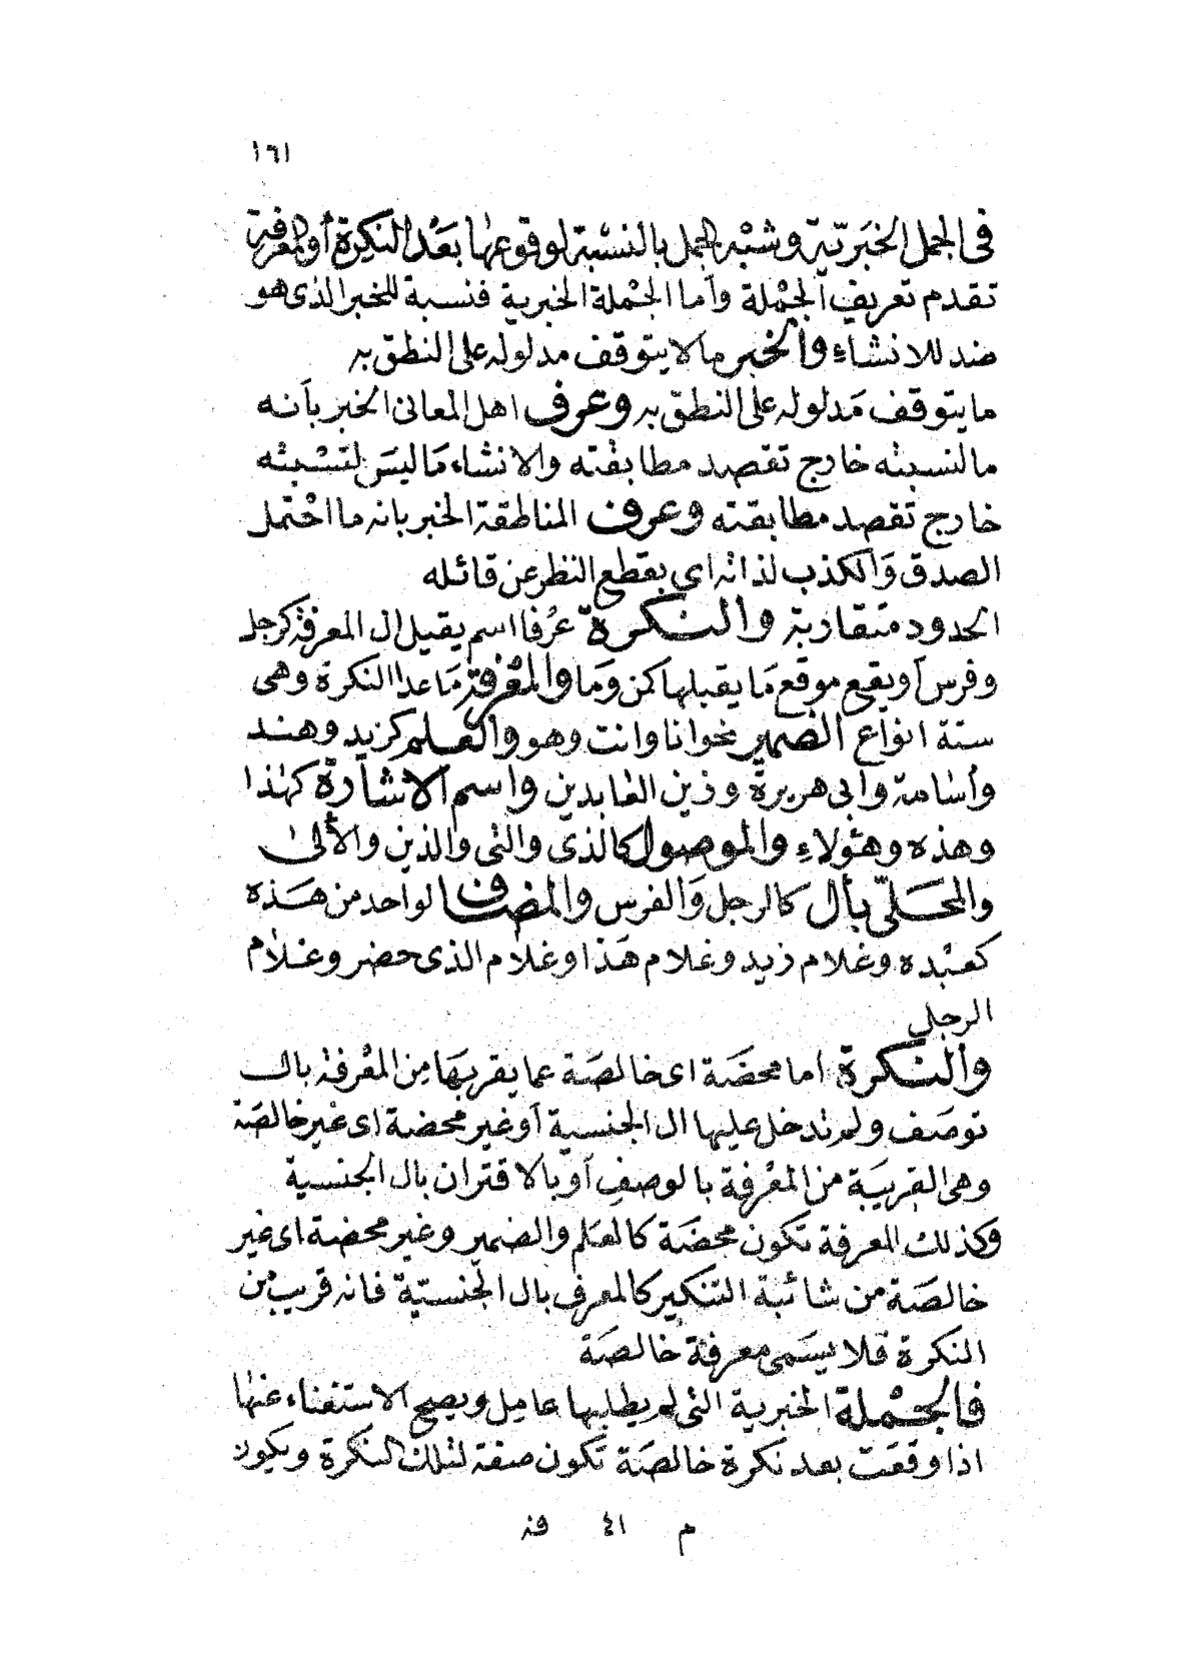 ١٦١
في الجمل الخبريّة وشبْه الجمل بالنسْبة لوقوعها بَعْد النكِرة أو المعرفة
تقدم تعريف الجمْلة وأما الجمْلة الخبرية فنسبة للخبر الذى هو
ضد للانشاء والخبر ما لا يتوقف مدلوله على النطق به
ما يتوقف مَدلوله على النطق به وعرف اهل المعانى الخبر بأنه
ما لنسبته خارج تقصد مطابقته والانشاء مَا ليسَ لنسْبته
خارج تقصد مطابقته وعرف المناطقة الخبر بانه ما احْتمل
الصدق وَالكذب لذاته اى بقطع النظر عن قائله
الحدود متقاربة والنكرة عُرفا اسم يقبل ال المعرفة كرجل
وفرس أو يقع موقع مَا يقبلها كمن وَما والمعْرفة مَا عدا النكرة وهى
ستة انواع الضمير نحو انا وانت وهو والعَلم كزيد وهند
وأسامة وابى هريرة وزين العابدين واسم الاشارة كهٰذا
وهذه وهؤلاءِ والموصول كالذى والتى والذين والأُلىٰ
والمحَلّى بأل كالرجل وَالفرس والمضاف لواحد من هَذه
كعبْده وغلام زيد وغلام هَذا وغلام الذى حضر وغلام
الرجل
والنكرة اما محضَة اى خالصَة عما يقربهَا مِن المعْرفة بال‍
توصَف ولم تدخل عليها ال الجنسية أو غير محضة اى غيْر خالصَة
وهى القريبَة من المعْرفة بالوصف أو بالاقتران بال الجنسية
وَكذلك المعرفة تكون محضَة كالعَلم والضمير وغير محضة اى غير
خالصَة من شائبة التنكير كالمعرف بال الجنسيّة فانه قريب من
النكرة فلا يسَمى معرفة خالصَة
فالجْملة الخبرية التى لم يطلبها عامل ويصح الاستغناء عنها
اذا وقعَت بعد نكرة خالصَة تكون صفة لتلك النكرة ويكون
م ٤١ فة